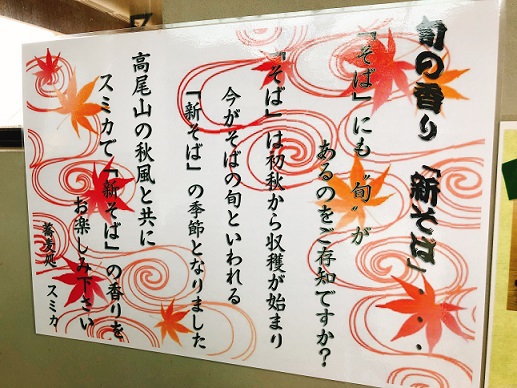 旬の香り「新そば」・・・
「そば」にも〝旬〟が
あるのをご存知ですか?
「そば」は初秋から収穫が始まり
今がそばの旬といわれる
「新そば」の季節となりました
高尾山の秋風と共に
スミカで「新そば」の香りを
お楽しみ下さい
蕎麦処 スミカ